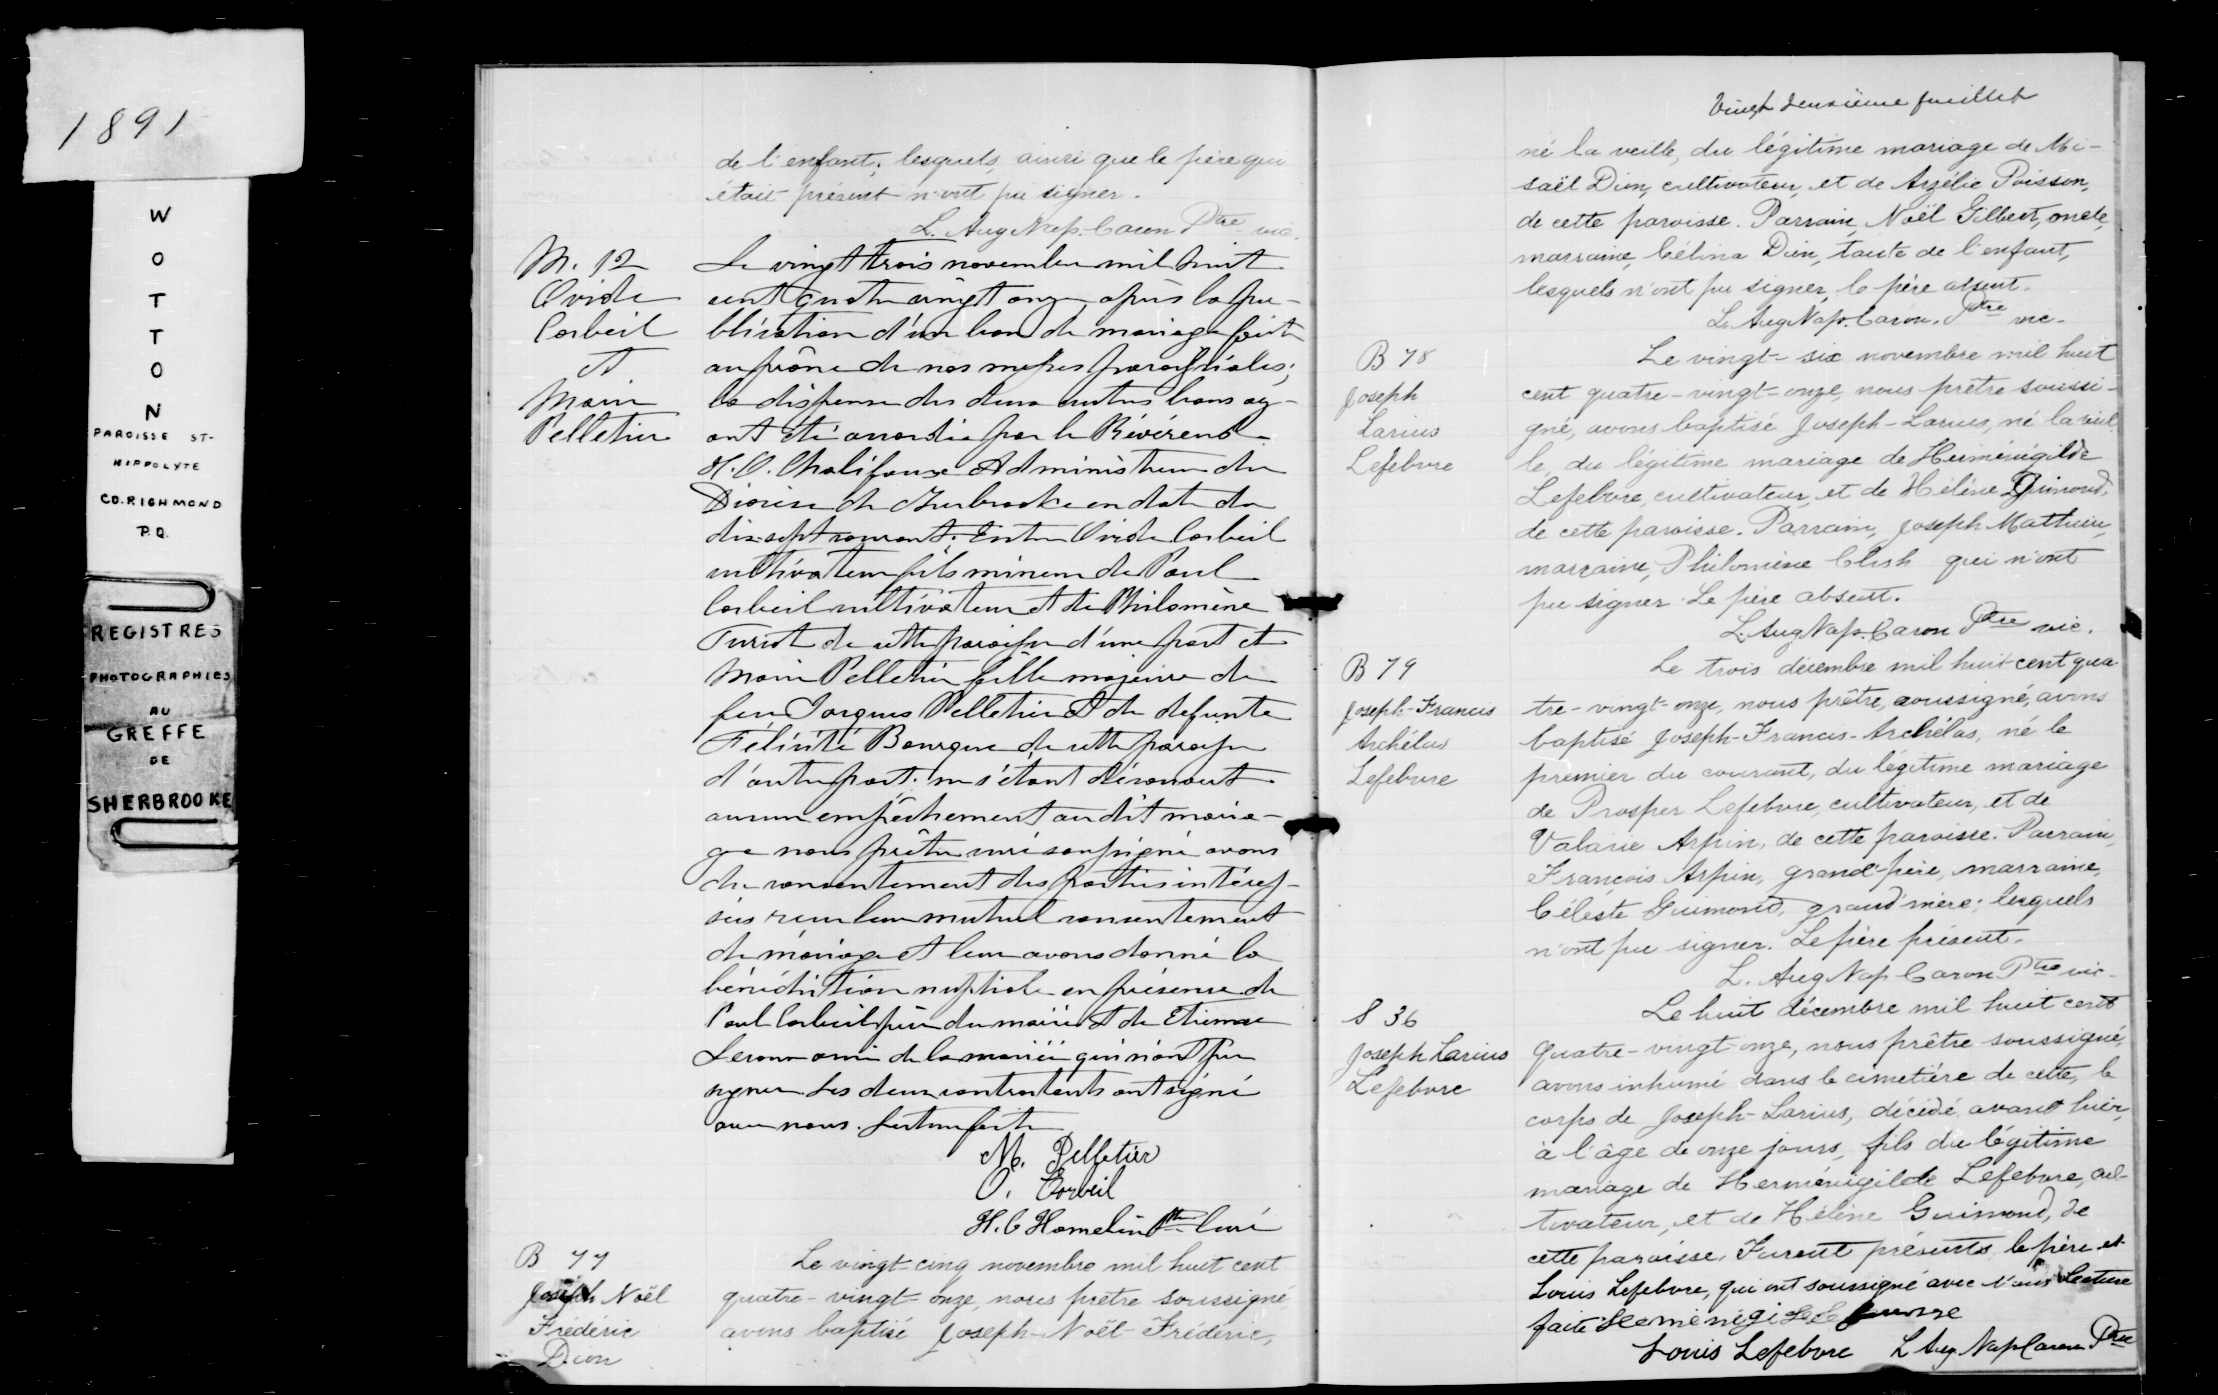 1891
W
O
T
T
O
N
PAROISSE ST-
HIPPOLYTE
CO. RICHMOND
P.Q.
REGISTRES
PHOTOGRAPHIES
AU
GREFFE
DE
SHERBROOKE
de l'enfant; lesquels, ainsi que le père qui
était présent n'ont pu signer.
L. Aug Nap. Caron Ptre vic.
M. 12
Ovide
Corbeil
et
Marie
Pelletier
Le vingt trois novembre mil huit
cent quatre vingt onze, après la pu-
blication d'un ban de mariage faite
au prône de nos messes paroissiales;
la dispense des deux autres bans ay-
ant été accordée par le Révérend
H. O. Chalifoux Administreur du
Diocèse de Sherbrooke en date du
dix-sept courant. Entre Ovide Corbeil
cultivateur fils mineur de Paul
Corbeil cultivateur et de Philomène
Turcot de cette paroisse d'une part et
Marie Pelletier fille majeure de
feu Jacques Pelletier et de defunte
Félicité Bourque de cette paroisse
d'autre part. ne s'étant découvert
aucun empêchement au dit maria-
ge nous prêtre curé soussigné avons
du consentement des parties intéres-
sées reçu leur mutuel consentement
de mariage et leur avons donné la
bénédiction nuptiale en présence de
Paul Corbeil père du marié et de Etienne
ami de la mariée qui n'ont pu
signer Les deux contractants ont signé
avec nous. Lecture faite
M. Pelletier
O. Corbeil
H. C Hamelin Ptre Curé
B 77
Joseph Noël
Frédéric
Dion
Le vingt-cinq novembre mil huit cent
quatre-vingt-onze, nous prêtre soussigné
avons baptisé Joseph-Noël-Frédéric,
Vingt deuxième feuillet
né la veille, du légitime mariage de Mi-
saël Dion, cultivateur, et de Arzélie Poisson,
de cette paroisse. Parrain, Noël Gilbert, oncle,
marraine, Célina Dion, tante de l'enfant,
lesquels n'ont pu signer, le père absent.
L. Aug Nap. Caron. Ptre vic.
B 78
Joseph
Larius
Lefebvre
Le vingt-six novembre mil huit
cent quatre-vingt-onze, nous prêtre soussi-
gné, avons baptisé Joseph-Larius, né la veil
le, du légitime mariage de Herménégilde
Lefebvre, cultivateur, et de Hélène Guimond,
de cette paroisse. Parrain, Joseph Mathieu,
marraine, Philomène Clish qui n'ont
pu signer. Le père absent.
L. Aug Nap. Caron Ptre vic.
B 79
Joseph-Francis
Archélas
Lefebvre
Le trois décembre mil huit-cent qua
tre-vingt-onze, nous prêtre, soussigné, avons
baptisé Joseph-Francis-Archélas, né le
premier du courant, du légitime mariage
de Prosper Lefebvre, cultivateur, et de
Valarie Arpin, de cette paroisse. Parrain,
François Arpin, grand-père, marraine,
Céleste Guimond, grand'mère; lesquels
n'ont pu signer. Le père présent.
L. Aug Nap Caron Ptre vic.
S 36
Joseph Larius
Lefebvre
Le huit décembre mil huit cent
quatre-vingt-onze, nous prêtre soussigné,
avons inhumé dans le cimetière de cette, le
corps de Joseph-Larius, décédé avant hier,
à l'âge de onze jours, fils du légitime
mariage de Herménégilde Lefebvre, cul-
tivateur, et de Hélène Guimond, de
cette paroisse. Furent présents le père et
Louis Lefebvre, qui ont soussigné avec nous Lecture
faite
Louis Lefebvre L Aug Nap Caron Ptre